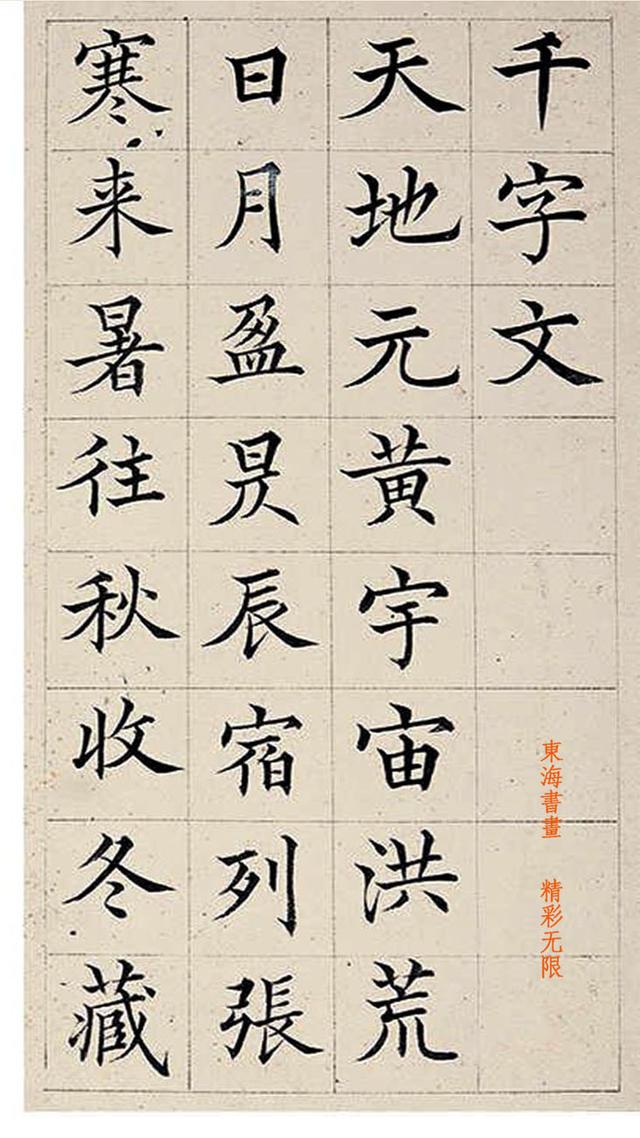 千字文
天地元黄宇宙洪荒
日月盈昃辰宿列張
寒来暑往秋收冬藏
東海書畫 精彩无限